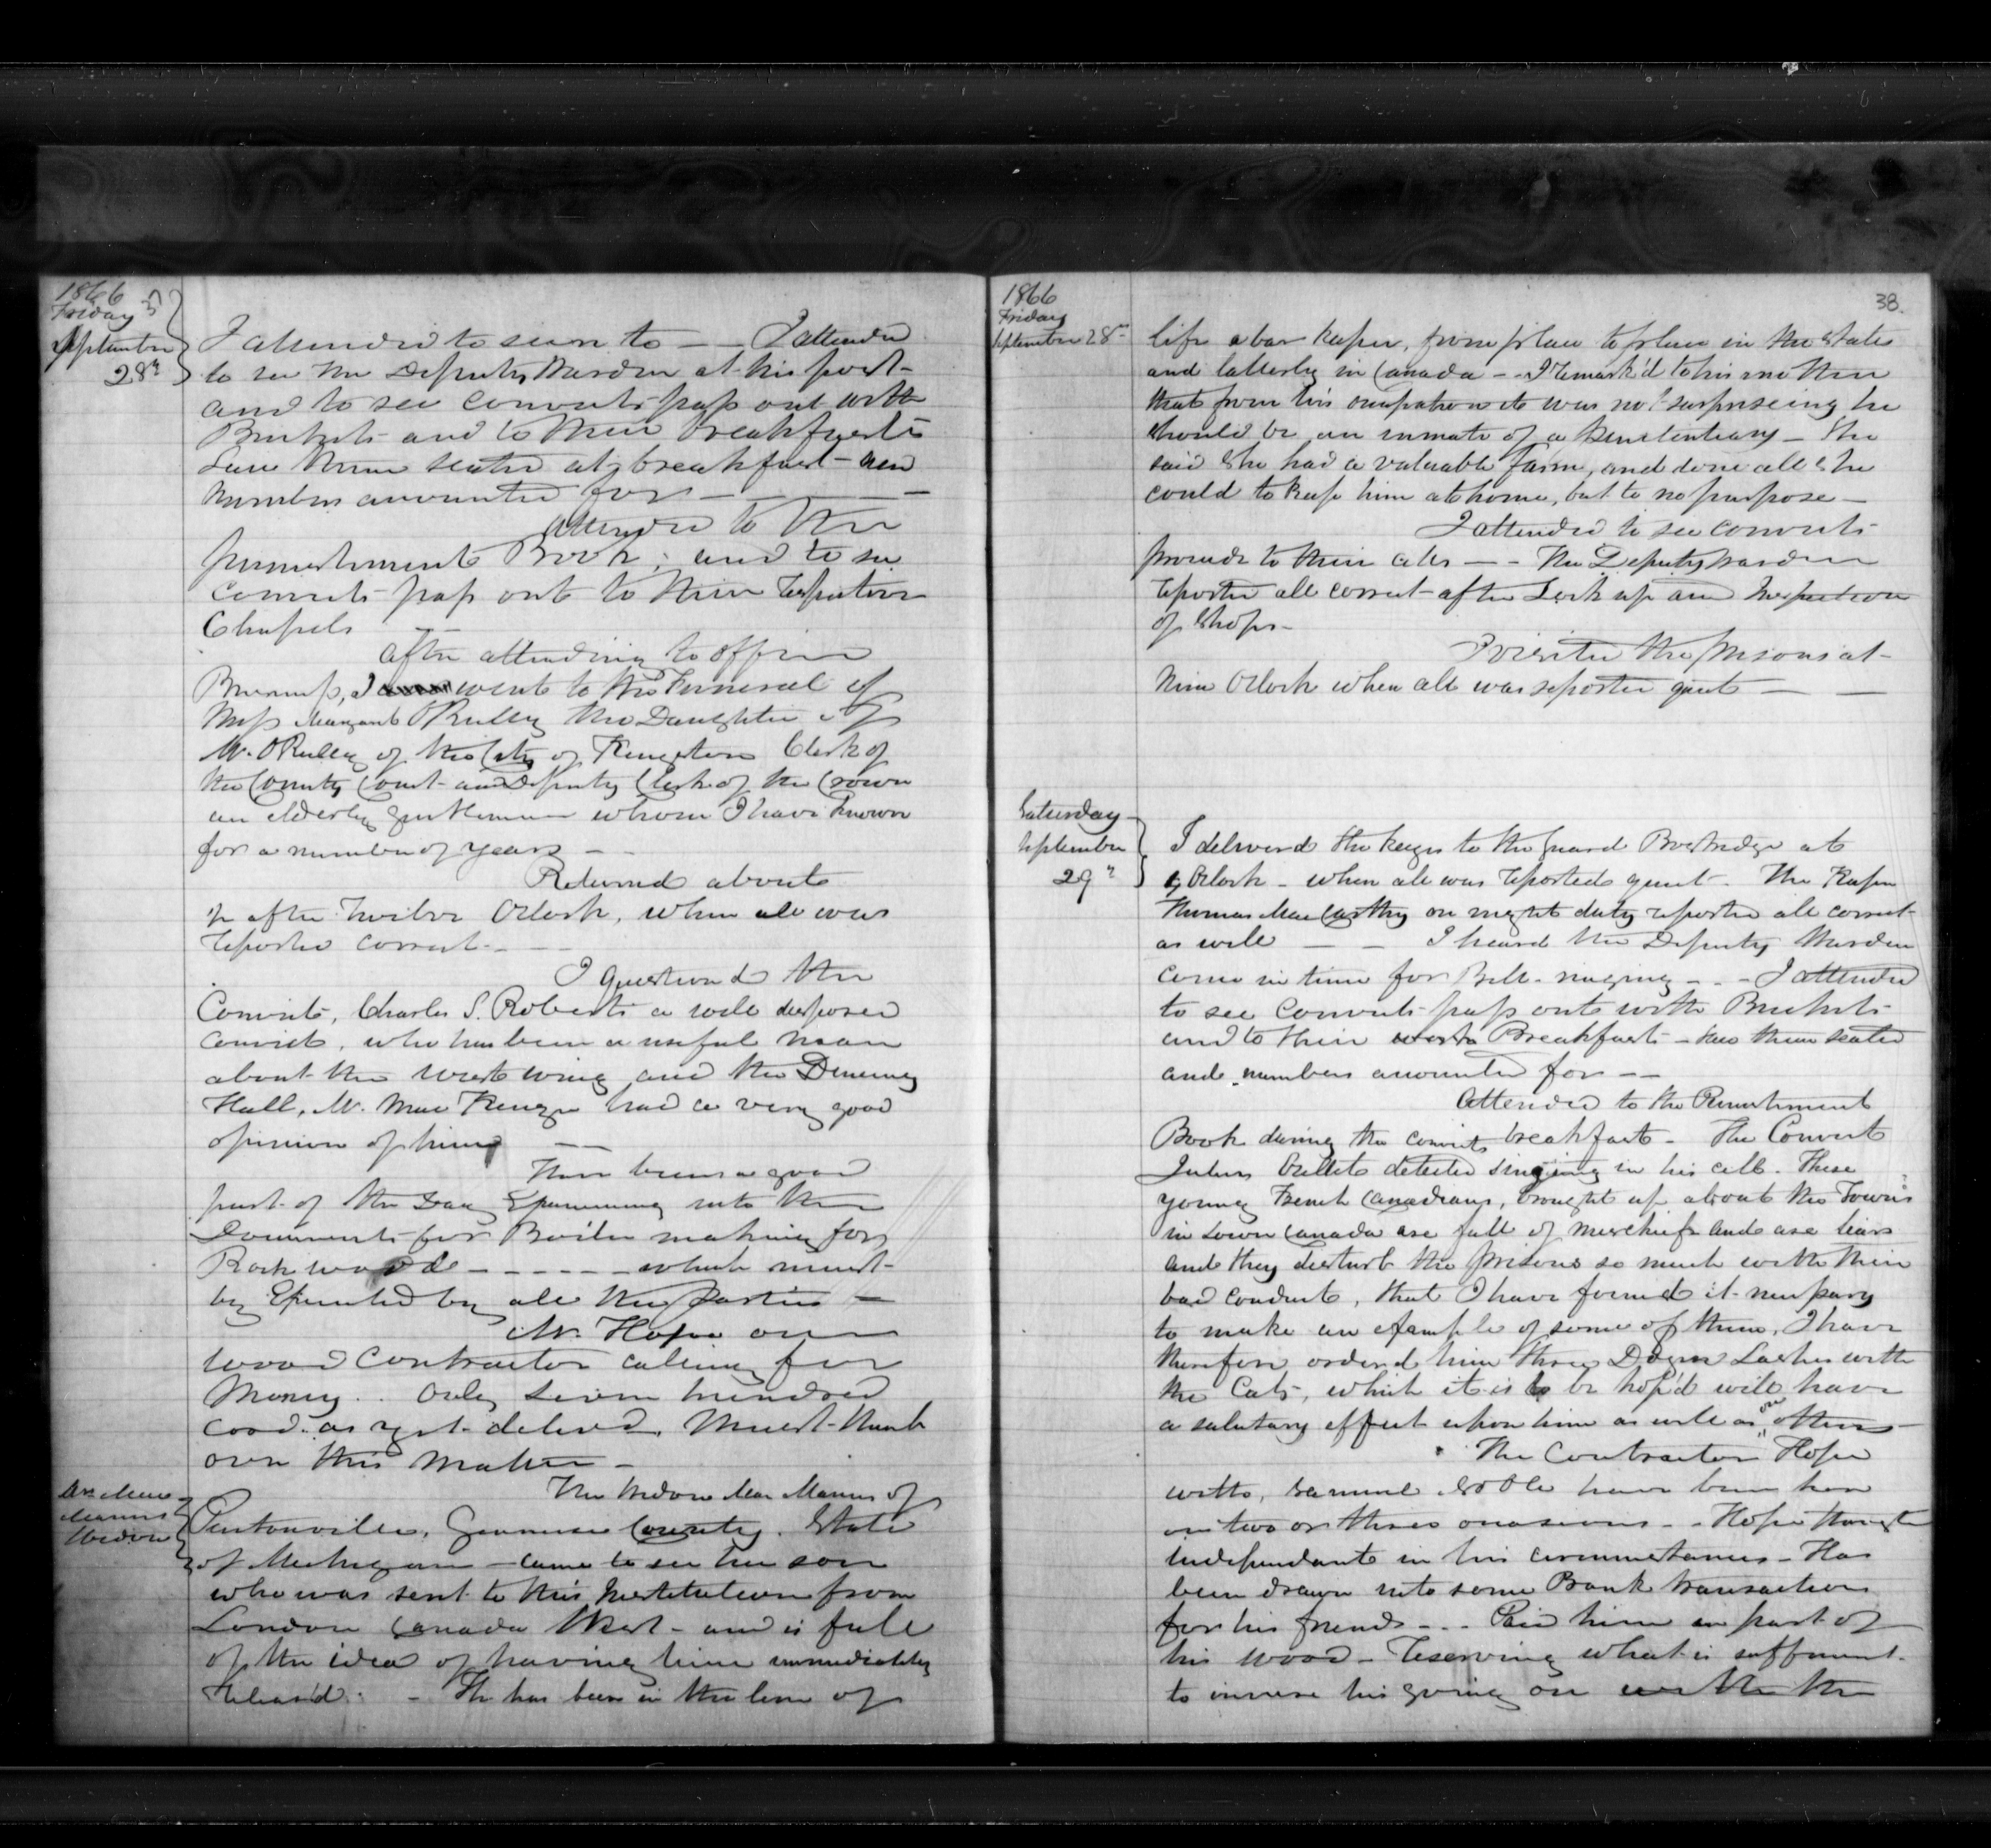 1866
Friday
September
28th
I attended to seven to — — I attended
to see the Deputy Warden at his post -
and to see convicts pass out with
Buckets and to their breakfasts
Saw them seated at breakfast - and
numbers accounted for — — —
Attended to the
punishment Book; and to see
convicts pass out to their respective
Chapels —
After attending to office
Business, I went to the Funeral of
Miss Margaret OReilly the Daughter of
Mr. OReilly of the City of Kingston Clerk of
the County Court and Deputy Clerk of the Crown
an elderly gentleman whom I have known
for a number of years —
Returned about
½ after Twelve Oclock, when all was
reported correct - —
I question'd the
Convict, Charles S. Roberts a well disposed
convict, who has been a useful man
about the west wing and the Dining
Hall, Mr. MacKenzie had a very good
opinion of him —
Have been a good
part of the Day Examining into the
Documents for Boiler making for
Rockwood - - - - - which must
be Executed by all the parties —
Mr. Hope our
wood contractor calling for
Money.. Only seven hundred
cord as yet deliverd. Must think
over this matter —
Mrs
Widow
The Widow of
Genesee County. State
of Michigan — came to see her son
who was sent to this Institution from
London Canada West - and is full
of the idea of having him immediately
releas'd. - He has been in the line of
38.
1866
Friday
September 28th
life a bar keeper, from place to place in the States
and latterly in Canada - - I remark'd to his mother
that from his occupation it was not surpriseing he
should be an inmate of a penitentiary - She
said she had a valuable farm, and done all she
could to keep him at home, but to no purpose —
I attended to see convicts
proceed to their cells — - The Deputy Warden
reported all correct - after Lock up and Inspection
of Shops -
I visited the prisons at -
Nine Oclock when all was reported quiet — —
Saturday
September
29th
I deliverd the keys to the guard Bostridge at
5 Oclock - when all was reported quiet - The Keeper
Thomas MacCarthy on night duty reported all correct -
as well — — I heard the Deputy Warden
come in time for Bell-ringing - - - I attended
to see convicts pass out with Buckets -
and to their Breakfast - saw them seated
and numbers accounted for — —
Attended to the Punishment
Book during the convicts breakfast - The Convict
Julien Ouellet detected singing in his cell. These
young French Canadians, brought up about the Towns
in Lower Canada are full of mischief and are liars
and they disturb the prisons so much with their
bad conduct, that I have found it necessary
to make an example of some of them, I have
therefore orderd him three Dozen Lashes with
the Cats, which it is to be hop'd will have
a salutary effect upon him as well as on others —
The Contractor Hope
with, Samuel have been here
on two or three occasions - - Hope though
independant in his circumstances - Has
been drawn into some Bank transaction
for his friends - - - Paid him in part of
his wood - reserving what is sufficient -
to insure his going on with the